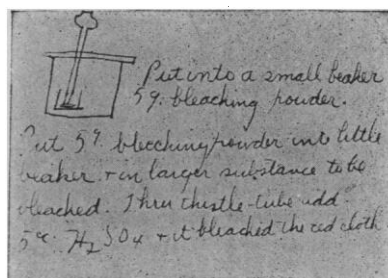 Put into a small beaker
5g. bleaching powder.
Put 5g bleeching powder into little
beaker + in larger substance to be
bleached. Thru thistle-tube add
5g. H2SO4 + it bleached the red cloth